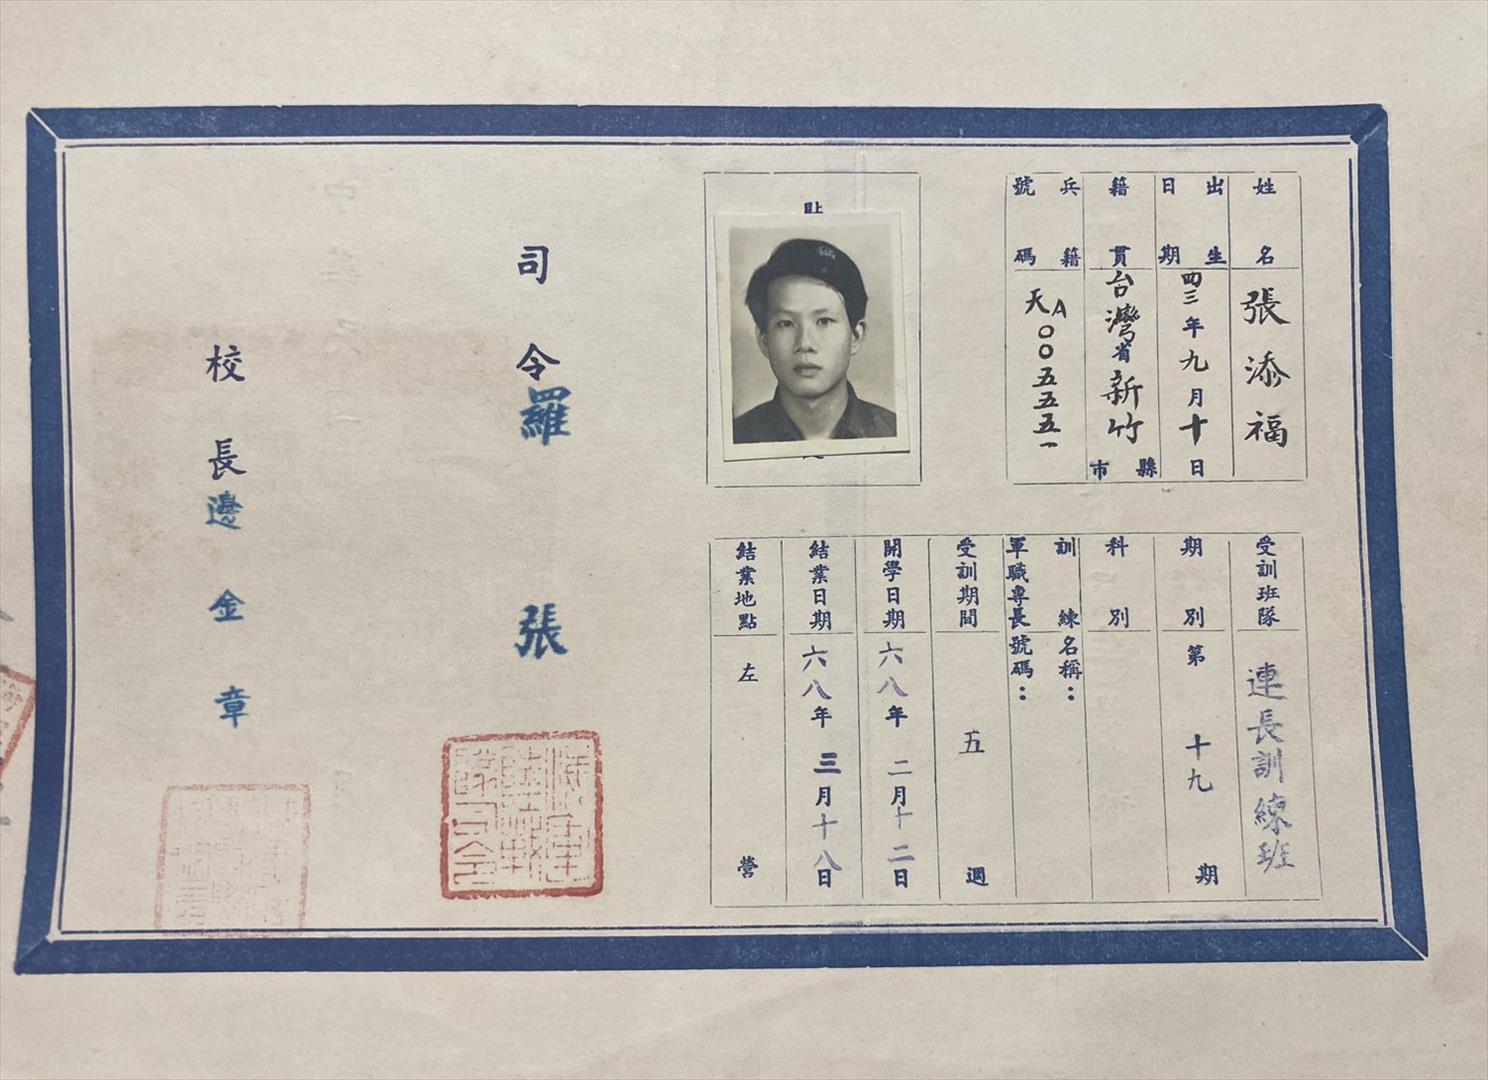 姓名 張添福
出生日期 四三年九月十日
籍貫 台灣省新竹縣市
兵籍號碼 天A〇〇五五五一
貼
受訓班隊 連長訓練班
期別 第十九期
科別
訓練名稱：
軍職專長號碼：
受訓期間 五週
開學日期 六八年二月十二日
結業日期 六八年三月十八日
結業地點 左營
司令羅張
校長邊金章